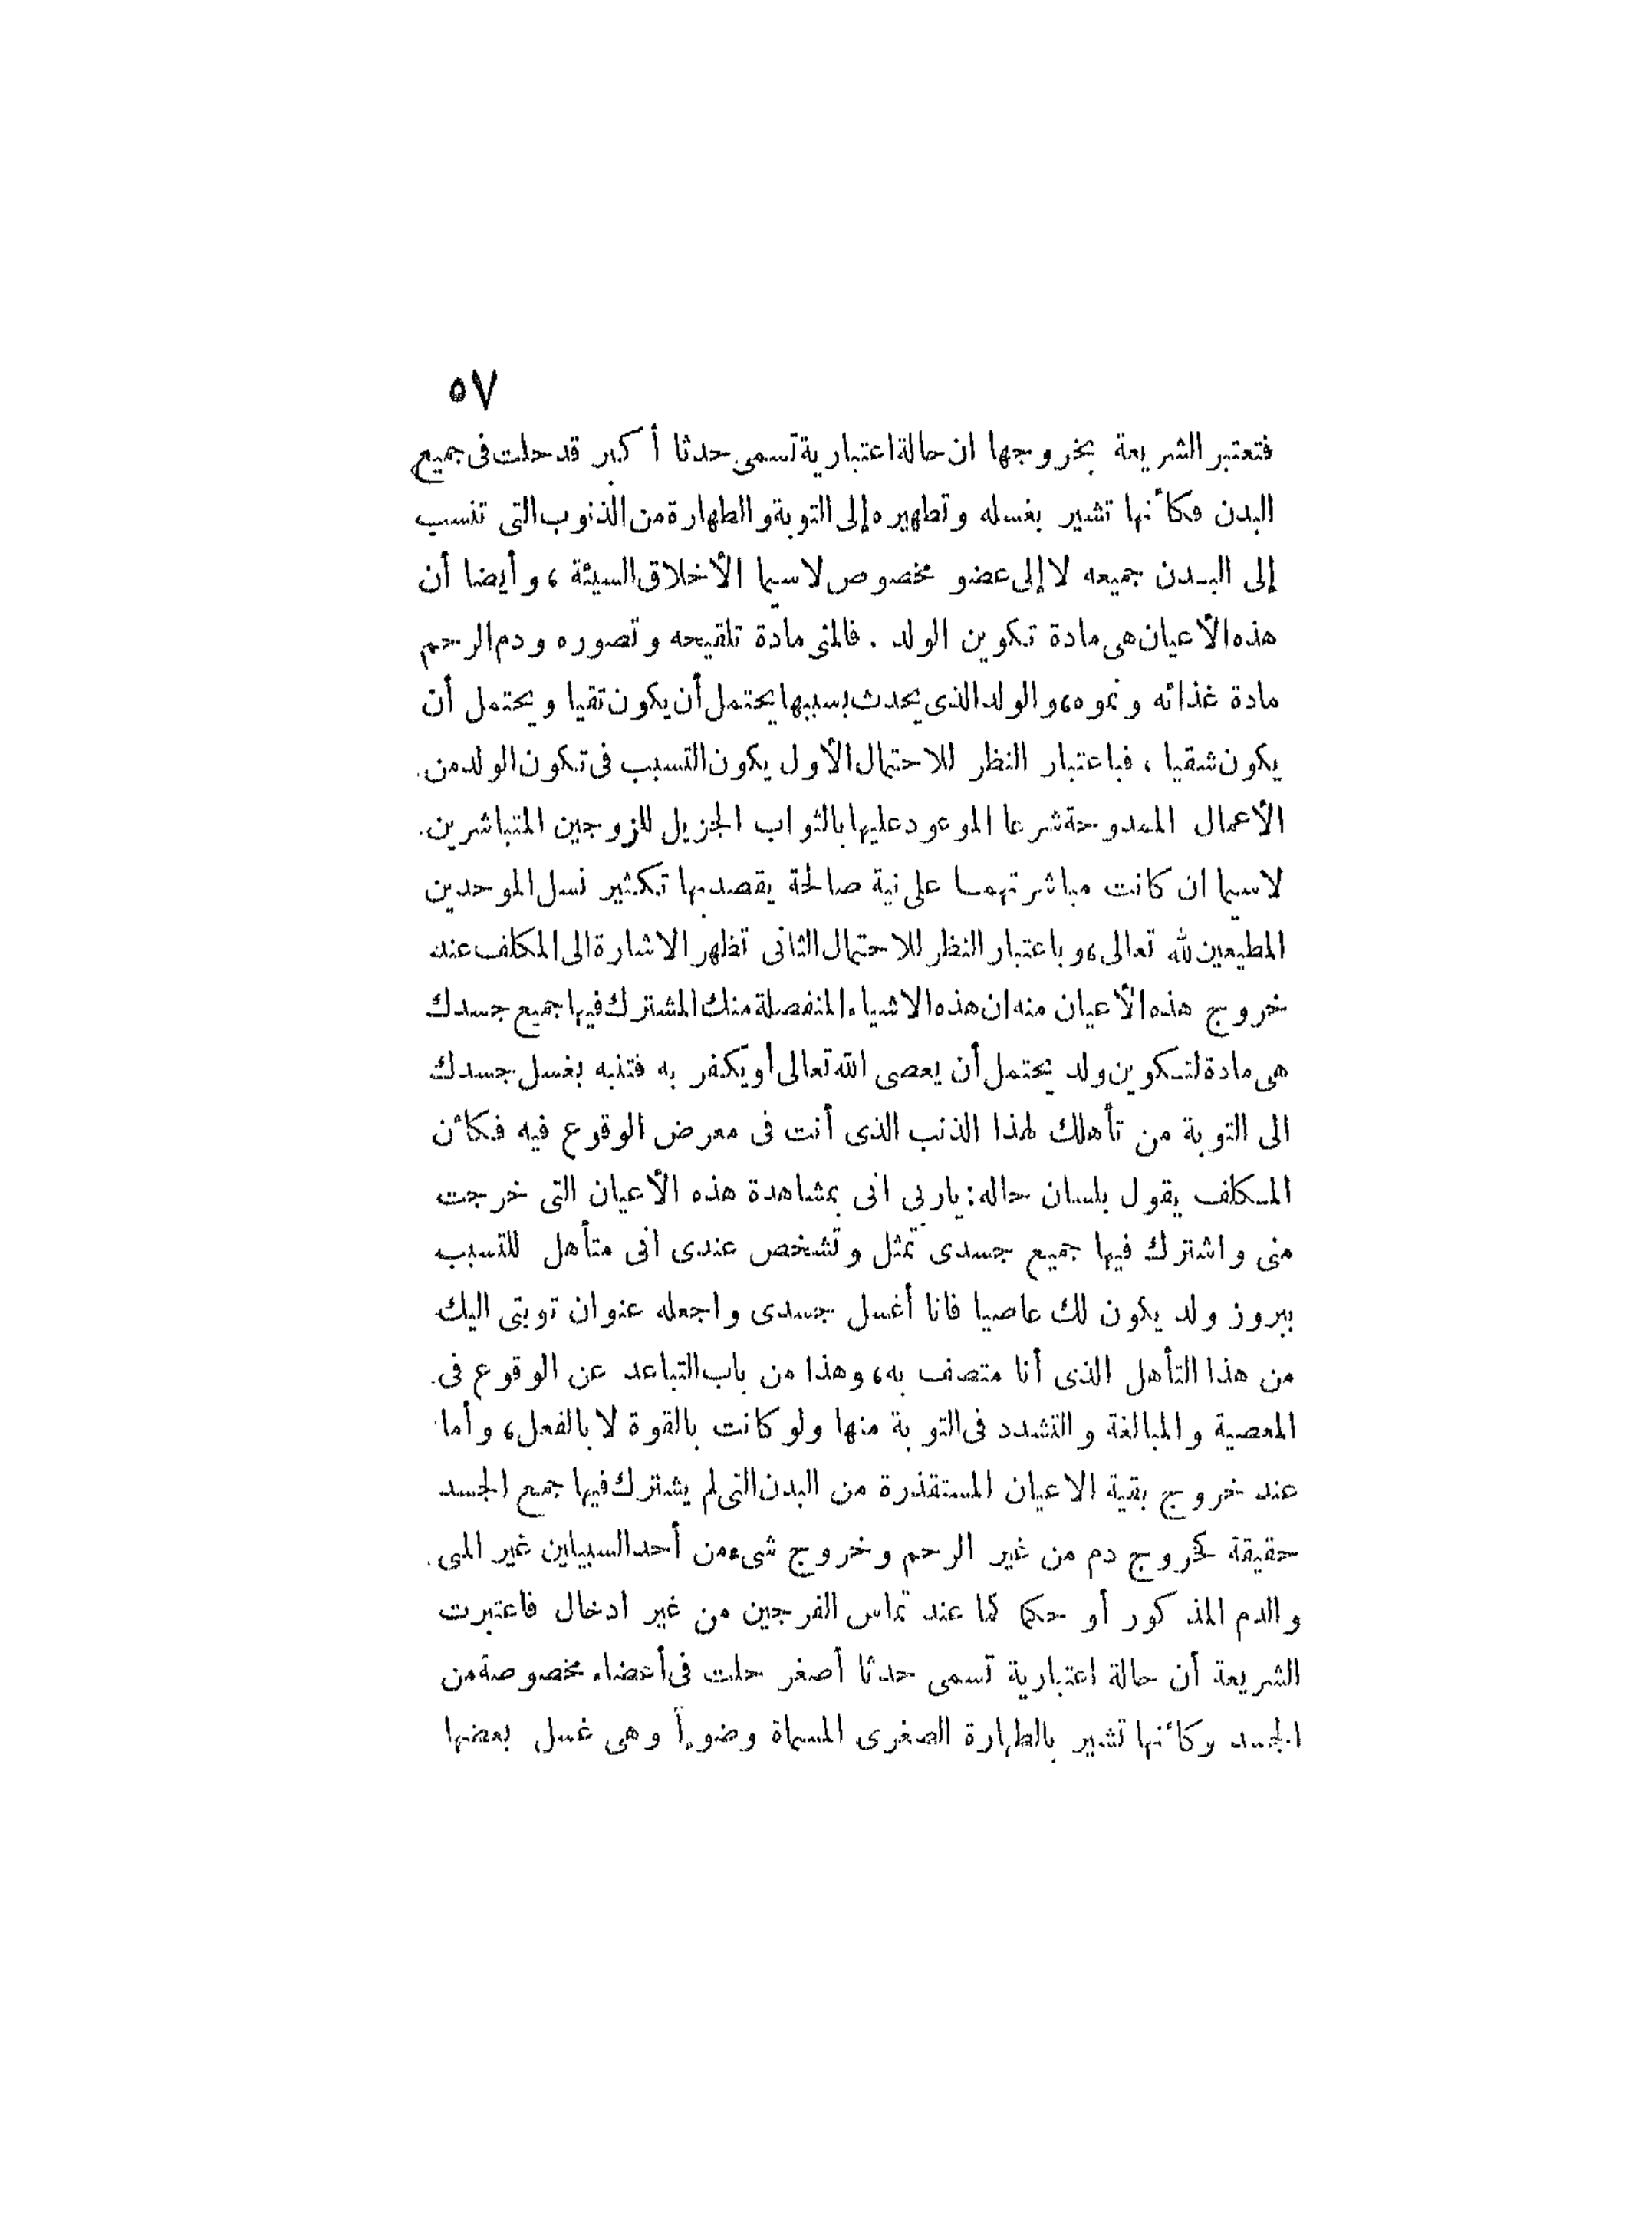 ٥٧
فتعتبر الشريعة بخروجها ان حالة اعتبارية تسمى حدثا أكبر قد حلت فى جميع
البدن فكأنها تشير بغسله وتطهيره إلى التوبة والطهارة من الذنوب التى تنسب
إلى البدن جميعه لا إلى عضو مخصوص لاسيما الأخلاق السيئة، وأيضا أن
هذه الأعيان هى مادة تكوين الولد. فالمنى مادة تلقيحه وتصوره ودم الرحم
مادة غذائه ونموه، والولد الذى يحدث بسببها يحتمل أن يكون تقيا ويحتمل أن
يكون شقيا، فباعتبار النظر للاحتمال الأول يكون التسبب فى تكون الولد من
الأعمال الممدوحة شرعا الموعود عليها بالثواب الجزيل للزوجين المتباشرين.
لاسيما ان كانت مباشرتهما على نية صالحة يقصد بها تكثير نسل الموحدين
المطيعين لله تعالى، وباعتبار النظر للاحتمال الثانى تظهر الاشارة الى المكلف عند
خروج هذه الأعيان منه ان هذه الاشياء المنفصلة منك المشترك فيها جميع جسدك
هى مادة لتكوين ولد يحتمل أن يعصى الله تعالى أو يكفر به فتنبه بغسل جسدك
الى التوبة من تأهلك لهذا الذنب الذى أنت فى معرض الوقوع فيه فكأن
المكلف يقول بلسان حاله: يا ربى انى بمشاهدة هذه الأعيان التى خرجت
منى واشترك فيها جميع جسدى تمثل وتشخص عندى انى متأهل للتسبب
ببروز ولد يكون لك عاصيا فانا أغسل جسدى واجعله عنوان توبتى اليك
من هذا التأهل الذى أنا متصف به، وهذا من باب التباعد عن الوقوع فى
المعصية والمبالغة والتشدد فى التوبة منها ولو كانت بالقوة لا بالفعل، وأما
عند خروج بقية الاعيان المستقذرة من البدن التى لم يشترك فيها جمع الجسد
حقيقة كخروج دم من غير الرحم وخروج شىء من أحد السبيلين غير المنى
والدم المذكور أو حكما كما عند تماس الفرجين من غير ادخال فاعتبرت
الشريعة أن حالة اعتبارية تسمى حدثا أصغر حلت فى أعضاء مخصوصة من
الجسد وكأنها تشير بالطهارة الصغرى المسماة وضوءاً وهى غسل بعضها